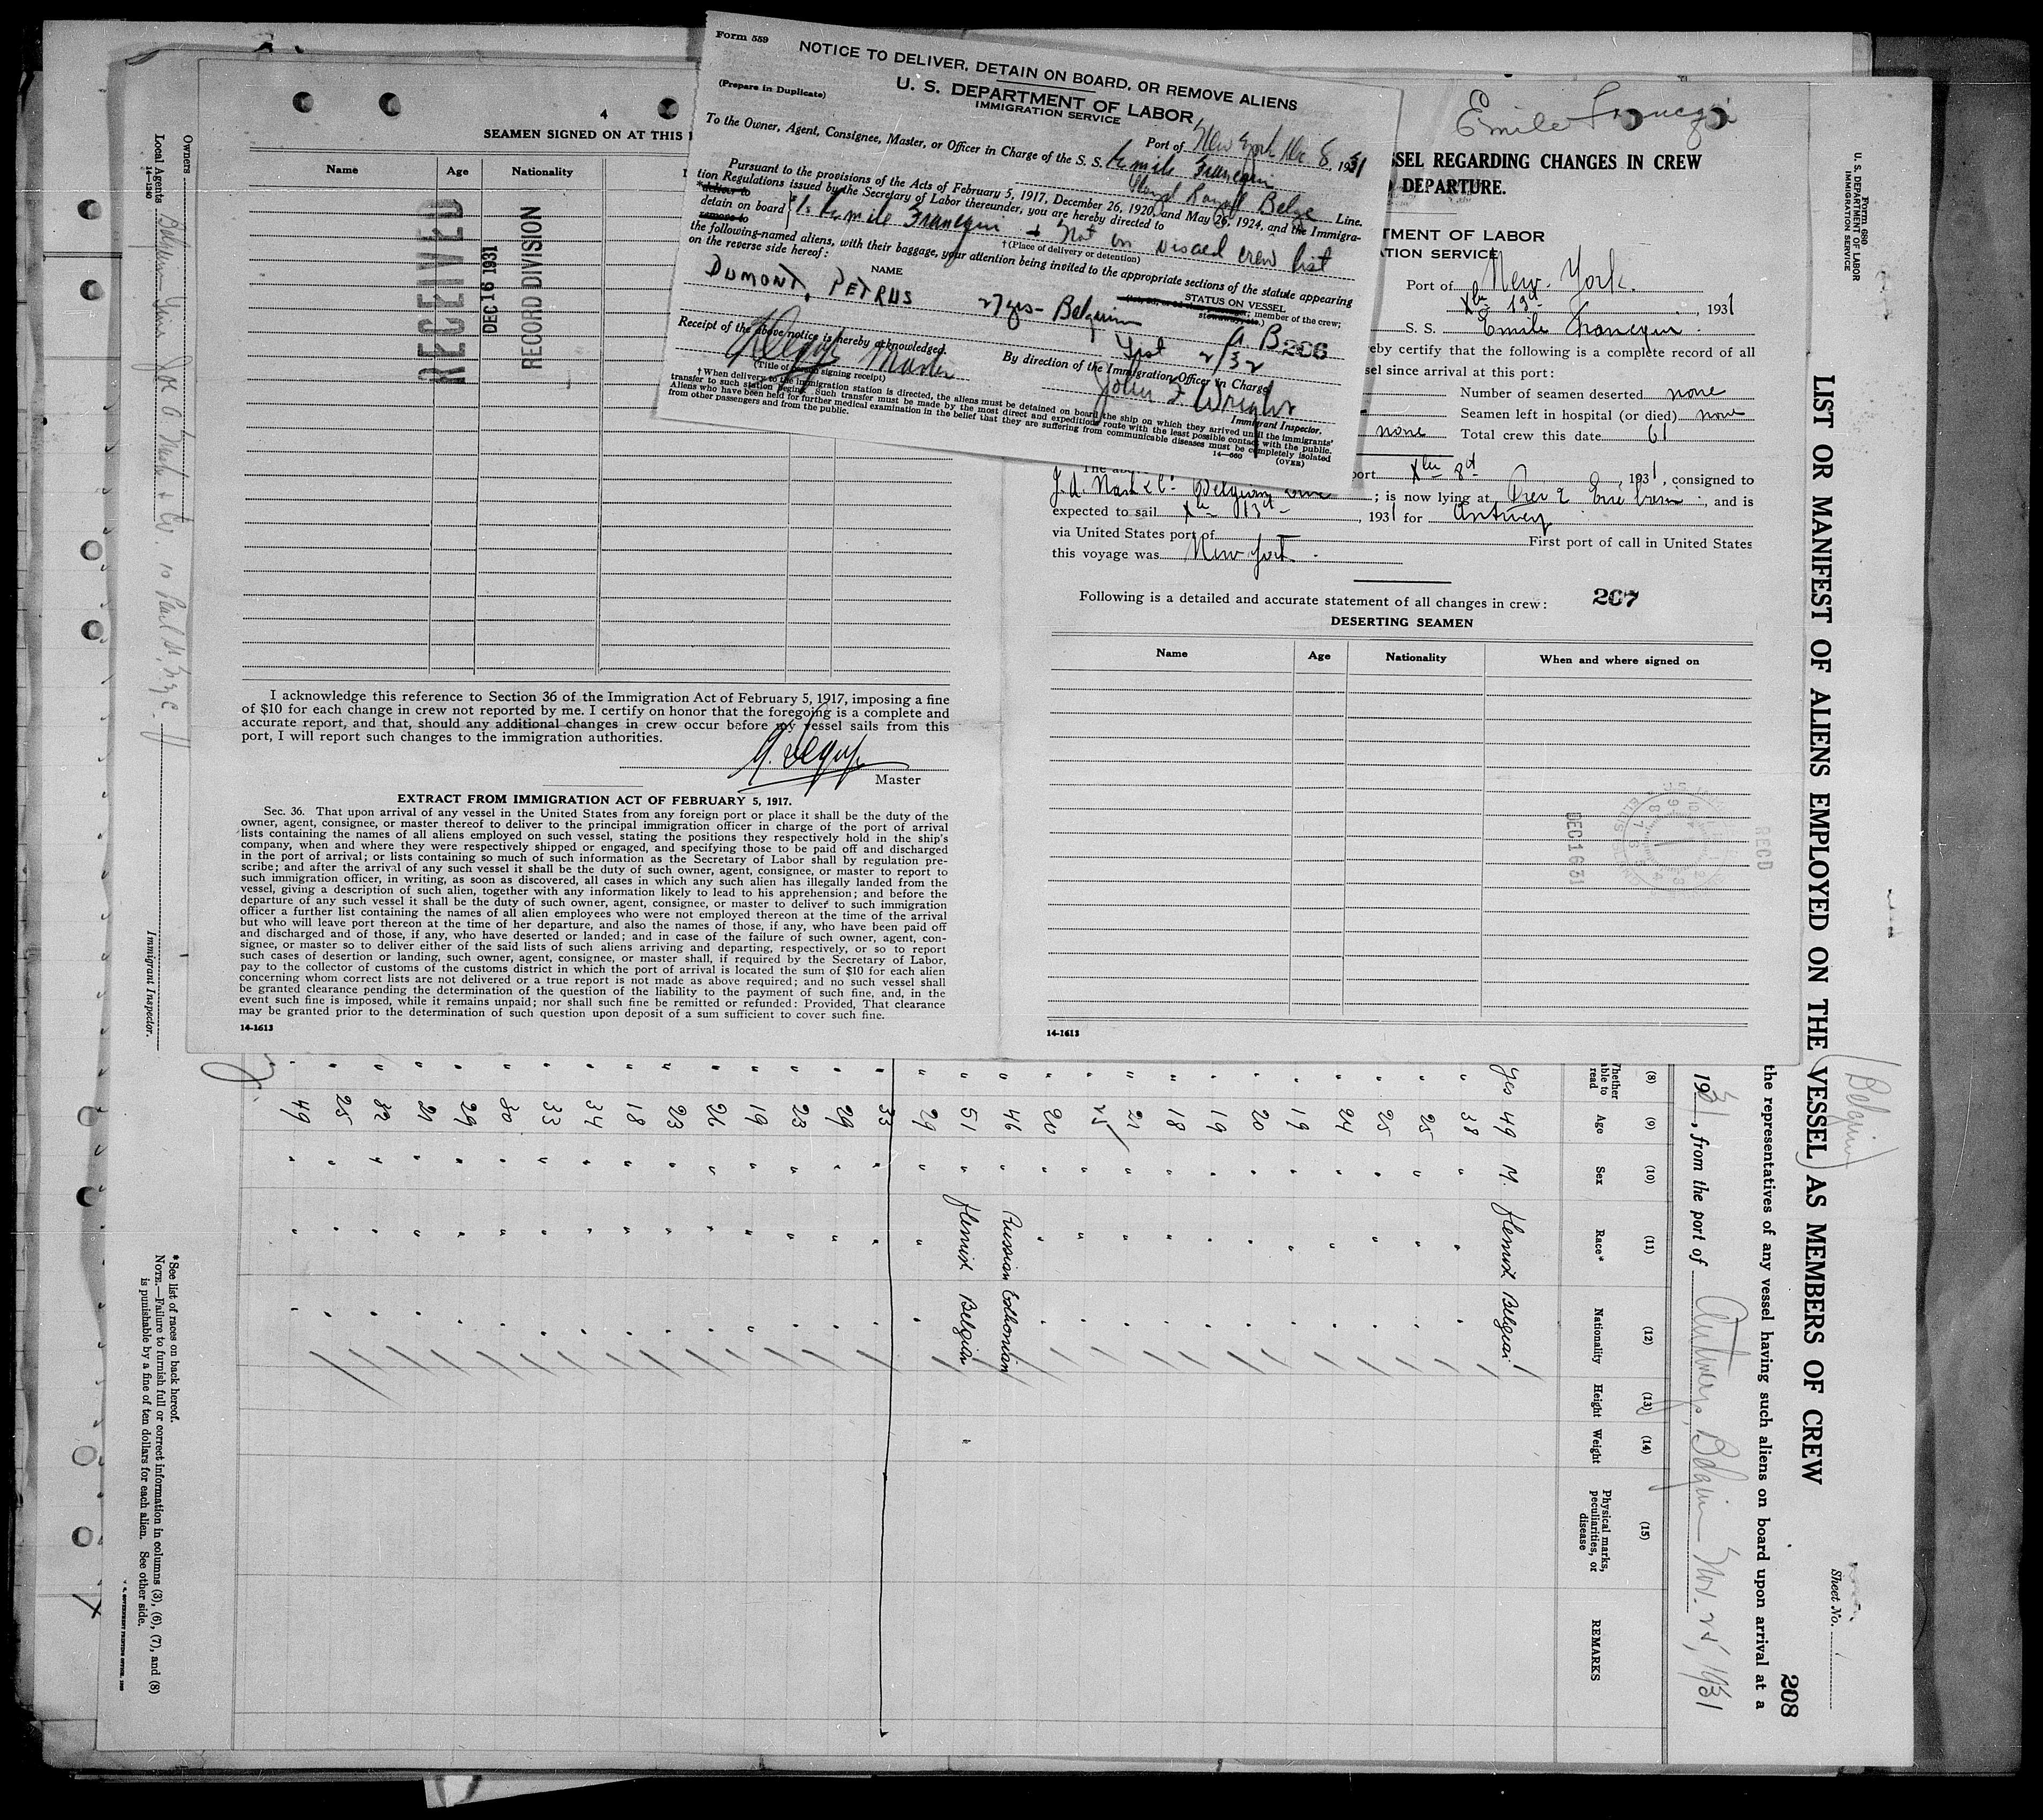 Form 559
NOTICE TO DELIVER, DETAIN ON BOARD, OR REMOVE ALIENS
(Prepare in Duplicate)
U. S. DEPARTMENT OF LABOR
IMMIGRATION SERVICE
Port of New York Dec 8, 1931
To the Owner, Agent, Consignee, Master, or Officer in Charge of the S. S. Emile Francqui
Lloyd Royal Belge Line.
Pursuant to the provisions of the Acts of February 5, 1917, December 26, 1920, and May 26, 1924, and the Immigra-
tion Regulations issued by the Secretary of Labor thereunder, you are hereby directed to
*deliver to
detain on board
remove to
Emile Francqui Not on visaed crew list
†(Place of delivery or detention)
the following-named aliens, with their baggage, your attention being invited to the appropriate sections of the statute appearing
on the reverse side hereof:
NAME
STATUS ON VESSEL
member of the crew;
DUMONT, PETRUS 27 yrs - Belgium
206
2/32
Receipt of the above notice is hereby acknowledged.
Master
(Title of person signing receipt)
By direction of the Immigration Officer in Charge,
John F. Wright
Immigrant Inspector.
†When delivery to the immigration station is directed, the aliens must be detained on board the ship on which they arrived until the immigrants'
transfer to such station begins. Such transfer must be made by the most direct and expeditious route with the least possible contact with the public.
Aliens who have been held for further medical examination in the belief that they are suffering from communicable diseases must be completely isolated
from other passengers and from the public.
14—560
(OVER)
4
SEAMEN SIGNED ON AT THIS
Name Age Nationality
RECEIVED
DEC 16 1931
RECORD DIVISION
I acknowledge this reference to Section 36 of the Immigration Act of February 5, 1917, imposing a fine
of $10 for each change in crew not reported by me. I certify on honor that the foregoing is a complete and
accurate report, and that, should any additional changes in crew occur before my vessel sails from this
port, I will report such changes to the immigration authorities.
Master
EXTRACT FROM IMMIGRATION ACT OF FEBRUARY 5, 1917.
Sec. 36. That upon arrival of any vessel in the United States from any foreign port or place it shall be the duty of the
owner, agent, consignee, or master thereof to deliver to the principal immigration officer in charge of the port of arrival
lists containing the names of all aliens employed on such vessel, stating the positions they respectively hold in the ship's
company, when and where they were respectively shipped or engaged, and specifying those to be paid off and discharged
in the port of arrival; or lists containing so much of such information as the Secretary of Labor shall by regulation pre-
scribe; and after the arrival of any such vessel it shall be the duty of such owner, agent, consignee, or master to report to
such immigration officer, in writing, as soon as discovered, all cases in which any such alien has illegally landed from the
vessel, giving a description of such alien, together with any information likely to lead to his apprehension; and before the
departure of any such vessel it shall be the duty of such owner, agent, consignee, or master to deliver to such immigration
officer a further list containing the names of all alien employees who were not employed thereon at the time of the arrival
but who will leave port thereon at the time of her departure, and also the names of those, if any, who have been paid off
and discharged and of those, if any, who have deserted or landed; and in case of the failure of such owner, agent, con-
signee, or master so to deliver either of the said lists of such aliens arriving and departing, respectively, or so to report
such cases of desertion or landing, such owner, agent, consignee, or master shall, if required by the Secretary of Labor,
pay to the collector of customs of the customs district in which the port of arrival is located the sum of $10 for each alien
concerning whom correct lists are not delivered or a true report is not made as above required; and no such vessel shall
be granted clearance pending the determination of the question of the liability to the payment of such fine, and, in the
event such fine is imposed, while it remains unpaid; nor shall such fine be remitted or refunded: Provided, That clearance
may be granted prior to the determination of such question upon deposit of a sum sufficient to cover such fine.
14-1613
Emile Francqui
SSEL REGARDING CHANGES IN CREW
DEPARTURE.
TMENT OF LABOR
ATION SERVICE
Port of New York.
Xber 13th, 1931
S. S. Emile Francqui.
eby certify that the following is a complete record of all
sel since arrival at this port:
Number of seamen deserted none
Seamen left in hospital (or died) none
none Total crew this date 61
port Xber 8th, 1931, consigned to
; is now lying at Pier 2 Erie Basin; and is
expected to sail Xber 13th, 1931 for Antwerp
via United States port of First port of call in United States
this voyage was New York.
Following is a detailed and accurate statement of all changes in crew: 207
DESERTING SEAMEN
Name Age Nationality When and where signed on
DEC 16 31
REC'D
14-1613
Form 680
U. S. DEPARTMENT OF LABOR
IMMIGRATION SERVICE
LIST OR MANIFEST OF ALIENS EMPLOYED ON THE VESSEL AS MEMBERS OF CREW
(Belgium)
Sheet No.
208
the representatives of any vessel having such aliens on board upon arrival at a
1931, from the port of Antwerp, Belgium Nov. 25, 1931
(8) (9) (10) (11) (12) (13) (14) (15)
Whether able to read Age Sex Race* Nationality Height Weight Physical marks, peculiarities, or disease REMARKS
Yes 49 M. Flemish Belgian
" 38 " " "
" 25 " " "
" 25 " " "
" 24 " " "
" 19 " " "
" 20 " " "
" 19 " " "
" 18 " " "
" 21 " " "
" 25 " " "
" 20 " " "
" 46 " Russian Esthonian
" 51 " Flemish Belgian
" 29 " " "
" 33 " " "
" 29 " " "
" 23 " " "
" 19 " " "
" 26 " " "
" 23 " " "
" 18 " " "
" 34 " " "
" 33 " " "
" 30 " " "
" 29 " " "
" 21 " " "
" 32 " " "
" 25 " " "
" 49 " " "
*See list of races on back hereof.
NOTE.—Failure to furnish full or correct information in columns (3), (6), (7), and (8)
is punishable by a fine of ten dollars for each alien. See other side.
Owners
Local Agents
14—1240
Immigrant Inspector.